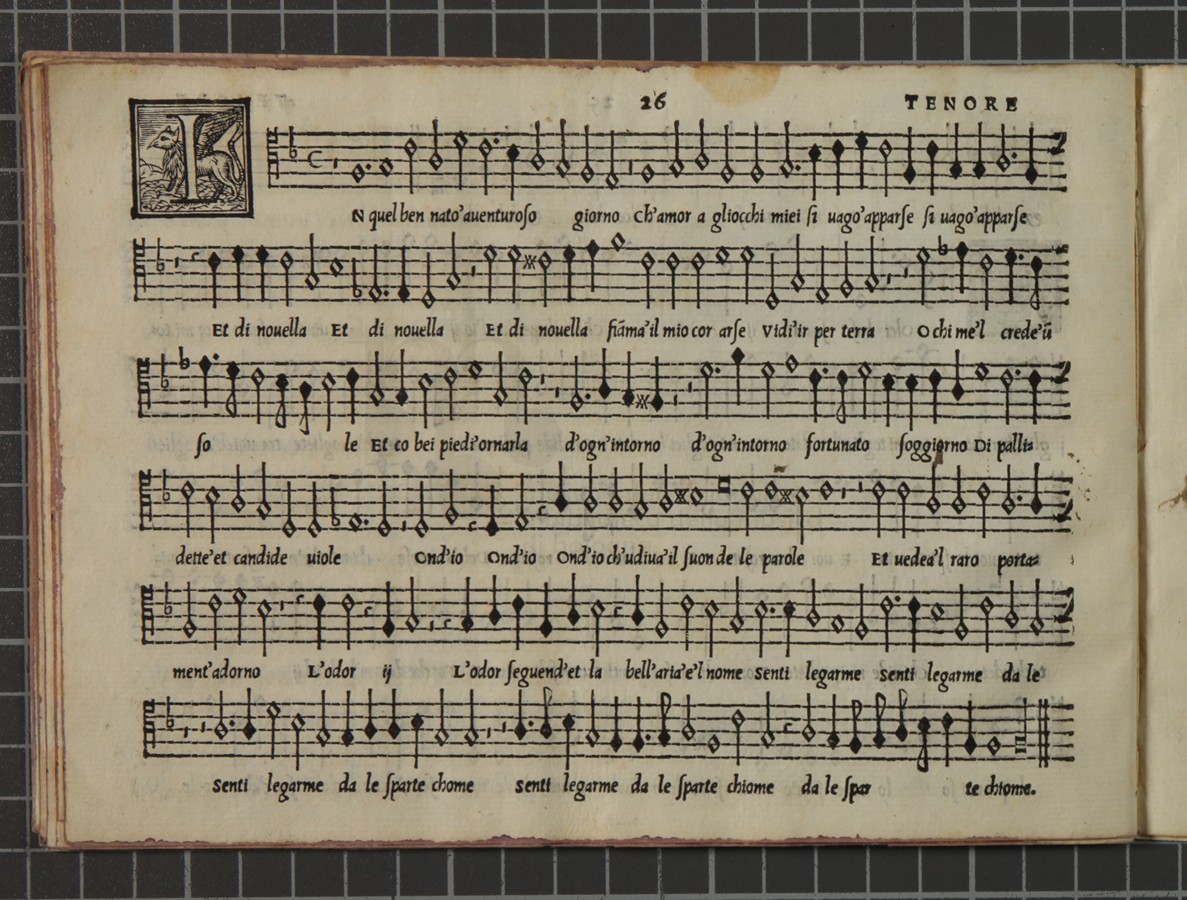 26 TENORE
IN quel ben nato'auenturoſo giorno Ch'amor a gliocchi miei ſi uago'apparſe ſi uago'apparſe
Et di nouella Et di nouella Et di nouella fiāma'il mio cor arſe Vidi'ir per terra O chi me'l crede'ū
ſo le Et co bei piedi'ornarla d'ogn'intorno d'ogn'intorno fortunato ſoggiorno Di palli=
dette'et candide uiole Ond'io Ond'io Ond'io ch'udiua'il ſuon de le parole Et uedea'l raro porta=
ment'adorno L'odor ij L'odor ſeguend'et la bell'aria'e'l nome Senti legarme Senti legarme da le
Senti legarme da le ſparte chome Senti legarme da le ſparte chiome da le ſpar te chiome.